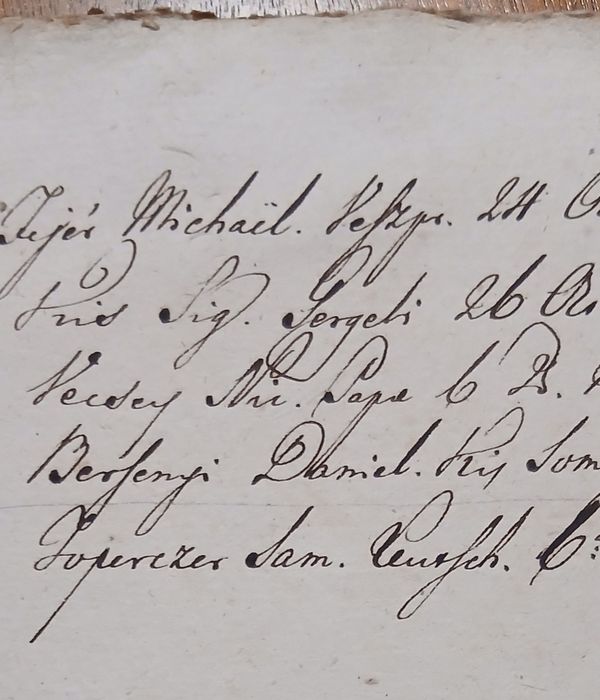 Fejér Michaël. Veszpr. 24
Kis Sig. Gergeli 26
Vecsey Nic. Papa 6
Bersenyi Daniel. Kis Som
Toperczer Sam. Leutsch. 6